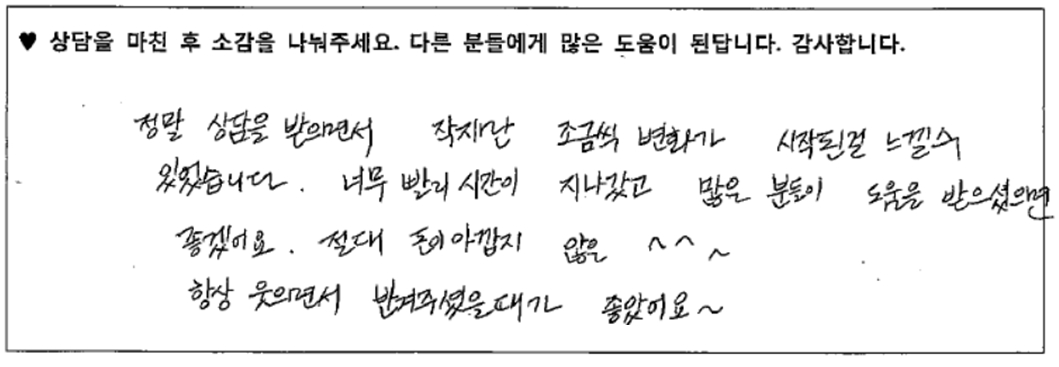 ♥ 상담을 마친 후 소감을 나눠주세요. 다른 분들에게 많은 도움이 된답니다. 감사합니다.
정말 상담을 받으면서 작지만 조금씩 변화가 시작된걸 느낄수
있었습니다. 너무 빨리 시간이 지나갔고 많은 분들이 도움을 받으셨으면
좋겠어요. 절대 돈이 아깝지 않은 ~^^~
항상 웃으면서 반겨주셨을때가 좋았어요~